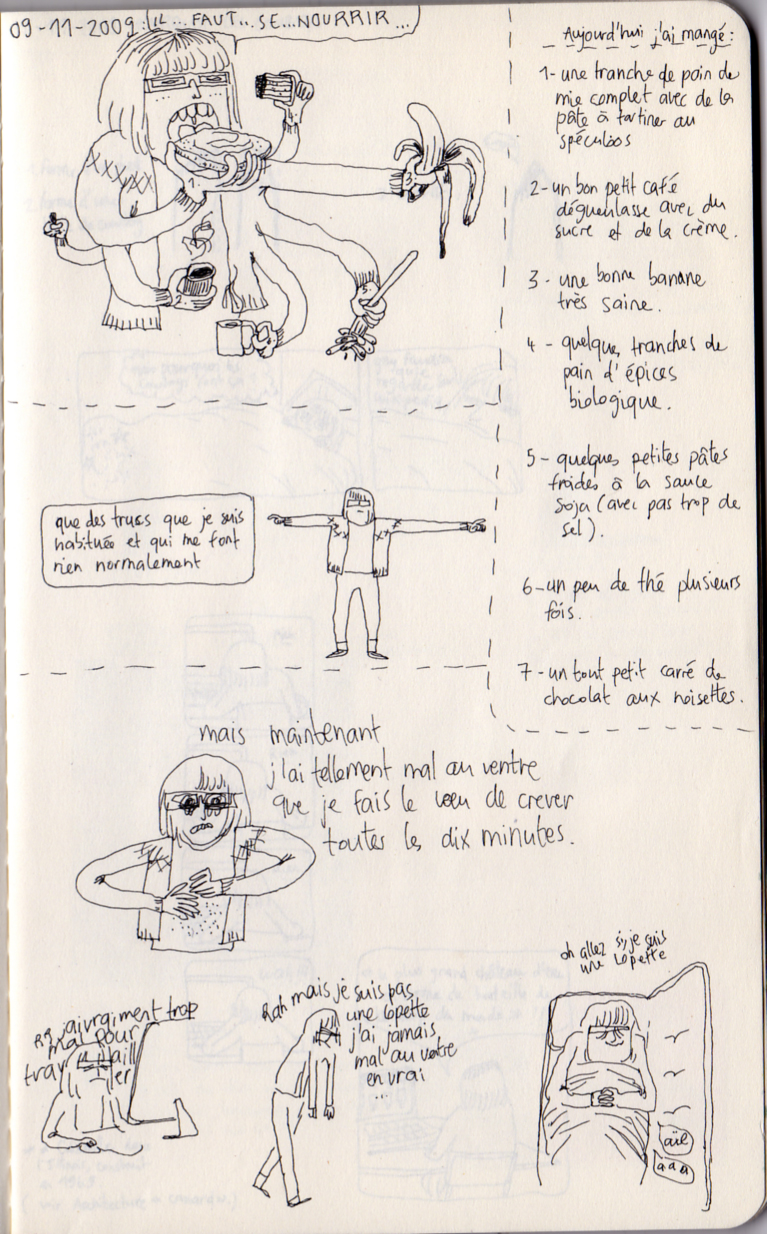 09-11-2009: IL... FAUT.. SE... NOURRIR...
Aujourd'hui j'ai mangé:
1- une tranche de pain de
mie complet avec de la
pâte à tartiner au
spéculoos
2- un bon petit café
dégueulasse avec du
sucre et de la crème.
3 - une bonne banane
très saine.
4 - quelque, tranches de
pain d'épices
biologique.
5 - quelques petites pâtes
froides à la sauce
soja (avec pas trop de
sel).
6- un peu de thé plusieurs
fois.
7- un tout petit carré de
chocolat aux noisettes.
que des trucs que je suis
habituée et qui me font
rien normalement
mais maintenant
j'ai tellement mal au ventre
que je fais le voeu de crever
toutes les dix minutes.
j'ai vraiment trop
mal pour
travaill
er
Rah mais je suis pas
une lopette
j'ai jamais
mal au ventre
en vrai
...
oh allez si, je suis
une lopette
aïe
aaa